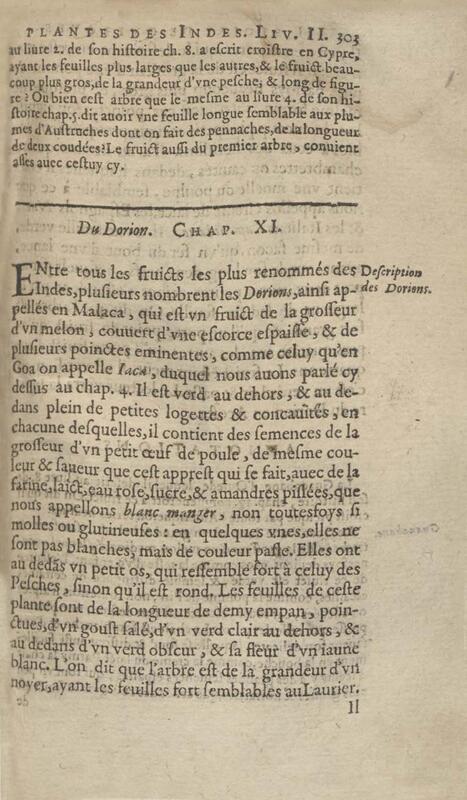 PLANTES DES INDES. LIV. II. 303
au liure 2. de son histoire ch. 8. a escrit croistre en Cypre,
ayant les feuilles plus larges que les autres,& le fruict beau-
coup plus gros,de la grandeur d'vne pesche, & long de figu-
re ? Ou bien cest arbre que le mesme au liure 4. de son hi-
stoire chap.5.dit auoir vne feuille longue semblable aux plu-
mes d'Austruches dont on fait des pennaches,de la longueur
de deux coudées?Le fruict aussi du premier arbre, conuient
asses auec cestuy cy.
Du Dorion. CHAP. XI.
ENtre tous les fruicts les plus renommés des
Description
Indes,plusieurs nombrent les Dorions,ainsi ap-
des Dorions.
pellés en Malaca, qui est vn fruict de la grosseur
d'vn melon, couuert d'vne escorce espaisse, & de
plusieurs poinctes eminentes, comme celuy qu'en
Goa on appelle Iaca, duquel nous auons parlé cy
dessus au chap. 4. Il est verd au dehors, & au de-
dans plein de petites logettes & concauités, en
chacune desquelles,il contient des semences de la
grosseur d'vn petit œuf de poule, de mesme cou-
leur & saueur que cest apprest qui se fait,auec de la
farine,laict,eau rose,sucre,& amandres pislées,que
nous appellons blanc manger, non toutesfoys si
molles ou glutineuses : en quelques vnes,elles ne
sont pas blanches, mais de couleur pasle. Elles ont
au dedãs vn petit os, qui ressemble fort à celuy des
Pesches, sinon qu'il est rond. Les feuilles de ceste
plante sont de la longueur de demy empan, poin-
ctues,d'vn goust salé,d'vn verd clair au dehors, &
au dedans d'vn verd obscur, & sa fleur d'vn iaune
blanc. L'on dit que l'arbre est de la grandeur d'vn
noyer,ayant les feuilles fort semblables au Laurier.
Il